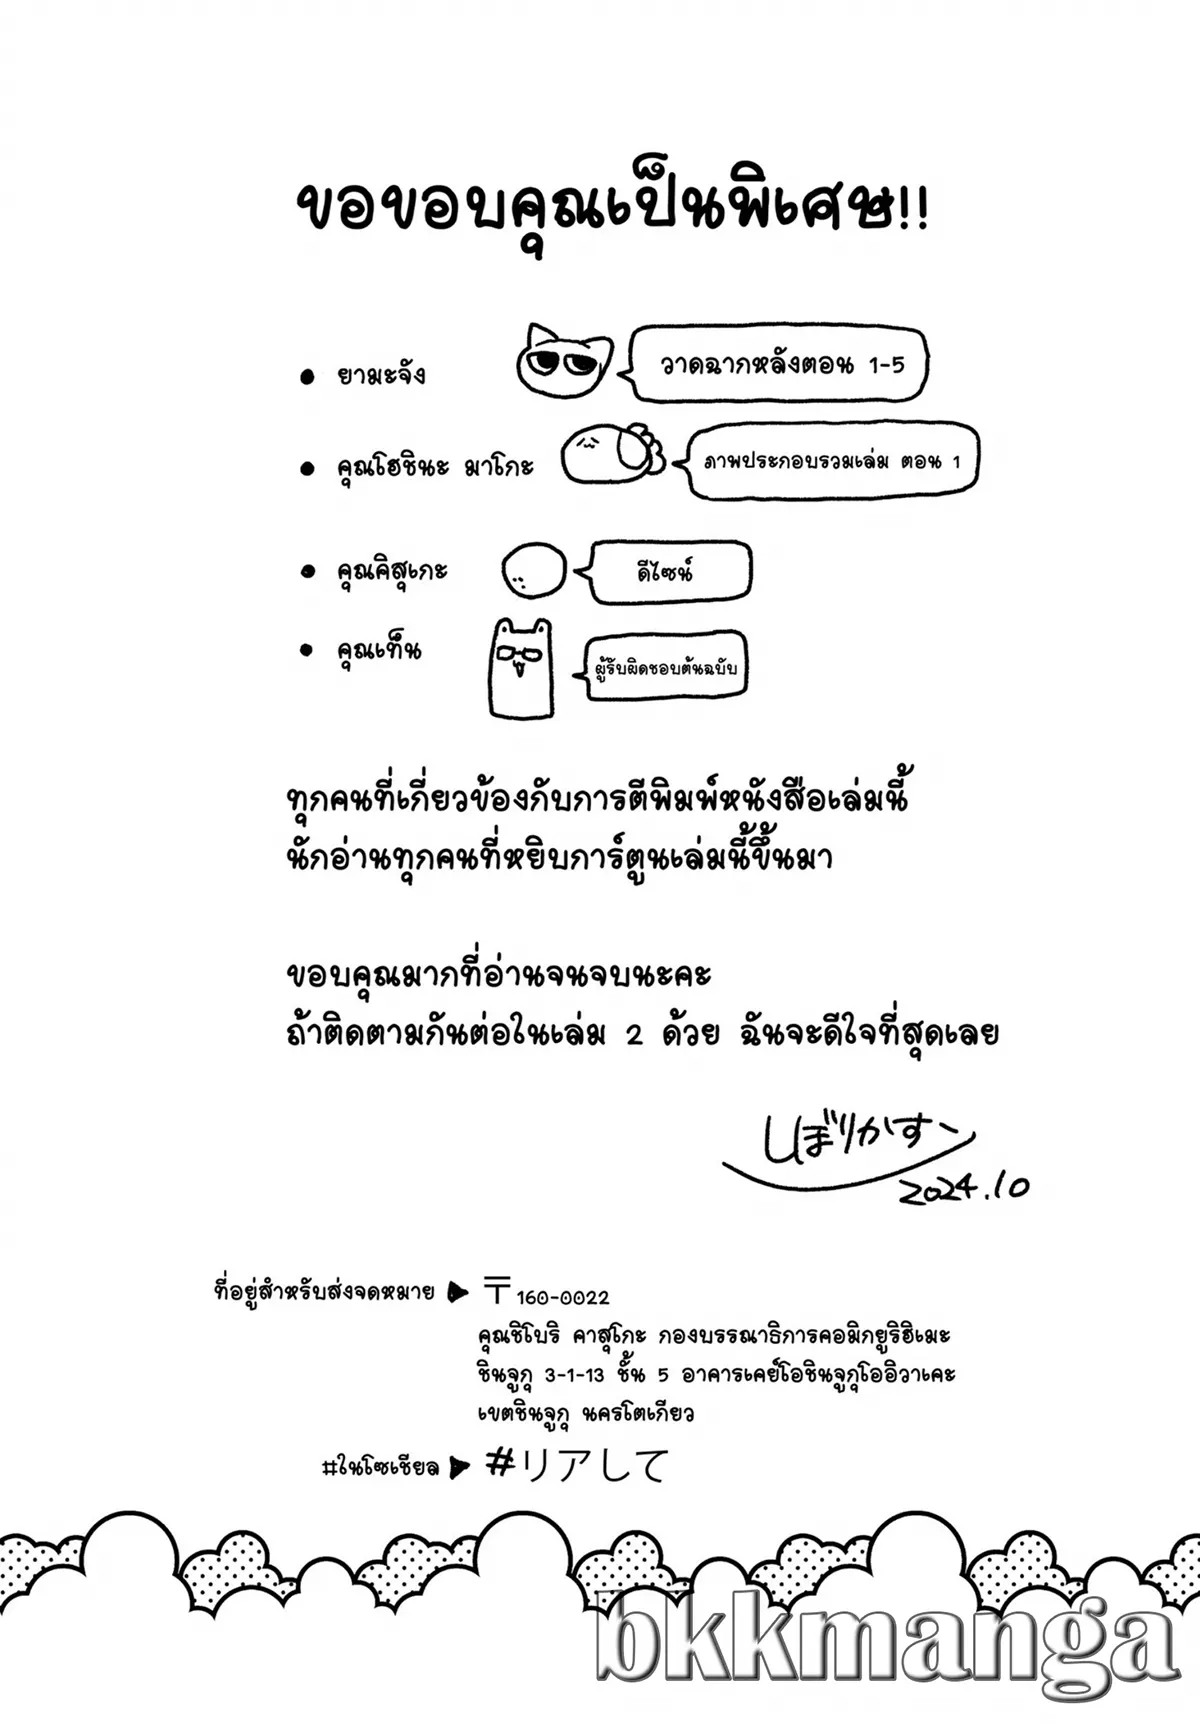 ขอขอบคุณเป็นพิเศษ!!
• ยามะจัง
วาดฉากหลังตอน 1-5
• คุณโฮชินะ มาโกะ
ภาพประกอบรวมเล่ม ตอน 1
• คุณคิสุเกะ
ดีไซน์
• คุณเท็น
ผู้รับผิดชอบต้นฉบับ
ทุกคนที่เกี่ยวข้องกับการตีพิมพ์หนังสือเล่มนี้
นักอ่านทุกคนที่หยิบการ์ตูนเล่มนี้ขึ้นมา
ขอบคุณมากที่อ่านจนจบนะคะ
ถ้าติดตามกันต่อในเล่ม 2 ด้วย ฉันจะดีใจที่สุดเลย
しぼりかすー
2024.10
ที่อยู่สำหรับส่งจดหมาย ▶ 〒160-0022
คุณชิโบริ คาสุโกะ กองบรรณาธิการคอมิกยูริฮิเมะ
ชินจูกุ 3-1-13 ชั้น 5 อาคารเคย์โอชินจูกุโออิวาเคะ
เขตชินจูกุ นครโตเกียว
#ในโซเชียล ▶ #リアして
bkkmanga